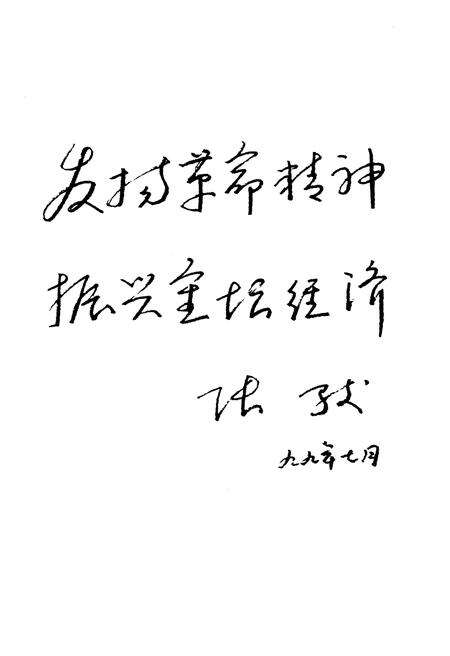 发扬革命精神
振兴金坛经济
张
九九年七月